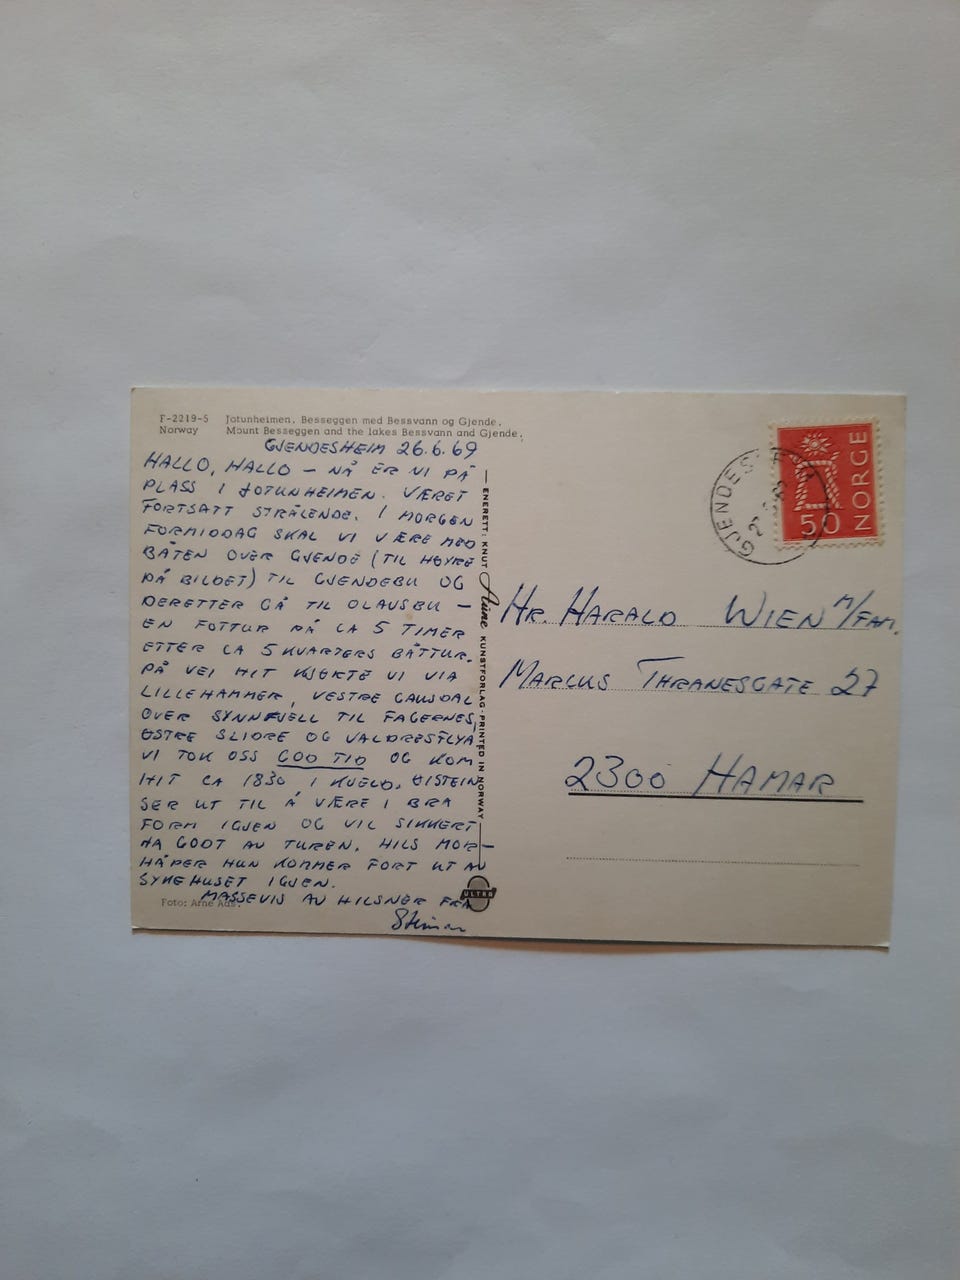 F-2219-5 Jotunheimen, Besseggen med Bessvann og Gjende.
Norway Mount Besseggen and the lakes Bessvann and Gjende.
GJENDESHEIM 26.6.69
HALLO, HALLO – NÅ ER VI PÅ
PLASS I JOTUNHEIMEN. VÆRET
FORTSATT STRÅLENDE. I MORGEN
FORMIDDAG SKAL VI VÆRE MED
BÅTEN OVER GJENDE (TIL HØYRE
PÅ BILDET) TIL GJENDEBU OG
DERETTER GÅ TIL OLAVSBU –
EN FOTTUR PÅ CA 5 TIMER
ETTER CA 5 KVARTERS BÅTTUR.
PÅ VEI HIT KJØRTE VI VIA
LILLEHAMMER, VESTRE GAUSDAL
OVER SYNNFJELL TIL FAGERNES,
ØSTRE SLIDRE OG VALDRESFLYA
VI TOK OSS GOD TID OG KOM
HIT CA 1830 I KVELD. ØISTEIN
SER UT TIL Å VÆRE I BRA
FORM IGJEN OG VIL SIKKERT
HA GODT AV TUREN. HILS MOR –
HÅPER HUN KOMMER FORT UT AV
SYKEHUSET IGJEN.
MASSEVIS AV HILSNER FRA
Foto: Arne Ads.
ENERETT: KNUT Aune KUNSTFORLAG · PRINTED IN NORWAY
ULTRA
GJENDES
50 NORGE
HR. HARALD WIEN M/FAM.
MARCUS THRANESGATE 27
2300 HAMAR